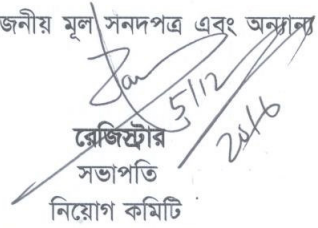 জনীয় মূল সনদপত্র এবং অন্যান্য
5/12
2016
রেজিস্ট্রার
সভাপতি
নিয়োগ কমিটি